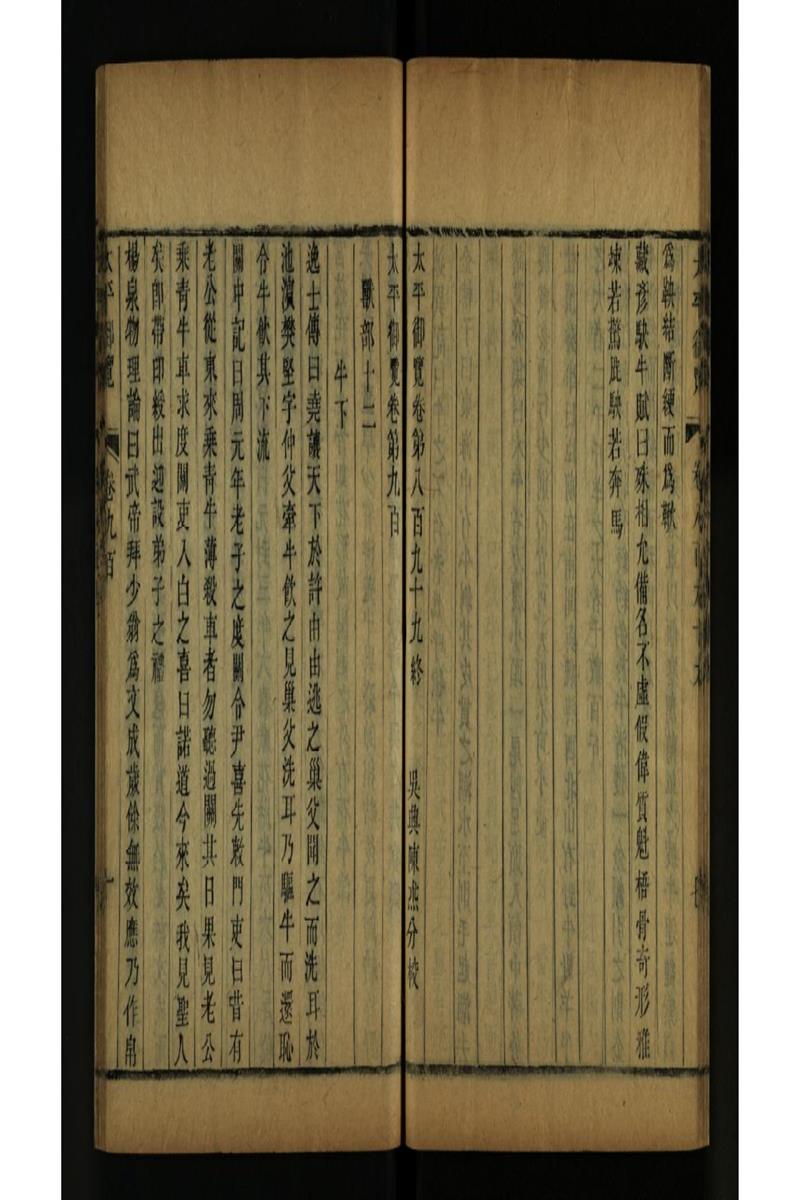 為鞅結斷綆而為靷
臧彦駃牛賦曰殊相允備名不虛假偉質魁梧骨奇形雅
竦若驚駃若奔馬
太平御覽卷第八百九十九終 吳興陳杰分校
太平御覽卷第九百
獸部十二
牛下
逸士傳曰堯讓天下於許由由逃之巢父聞之而洗耳於
池濱樊堅字仲父牽牛飲之見巢父洗耳乃驅牛而還恥
令牛飲其下流
關中記曰周元年老子之度關令尹喜先敕門吏曰昔有
老公從東來乘青牛薄𣪠車者勿聽過關其日果見老公
乘青牛車求度關吏入白之喜曰諾道今來矣我見聖人
矣即帶印綬出迎設弟子之禮
楊泉物理論曰武帝拜少翁為文成歲餘無效應乃作帛
太平御覽 卷九百 一